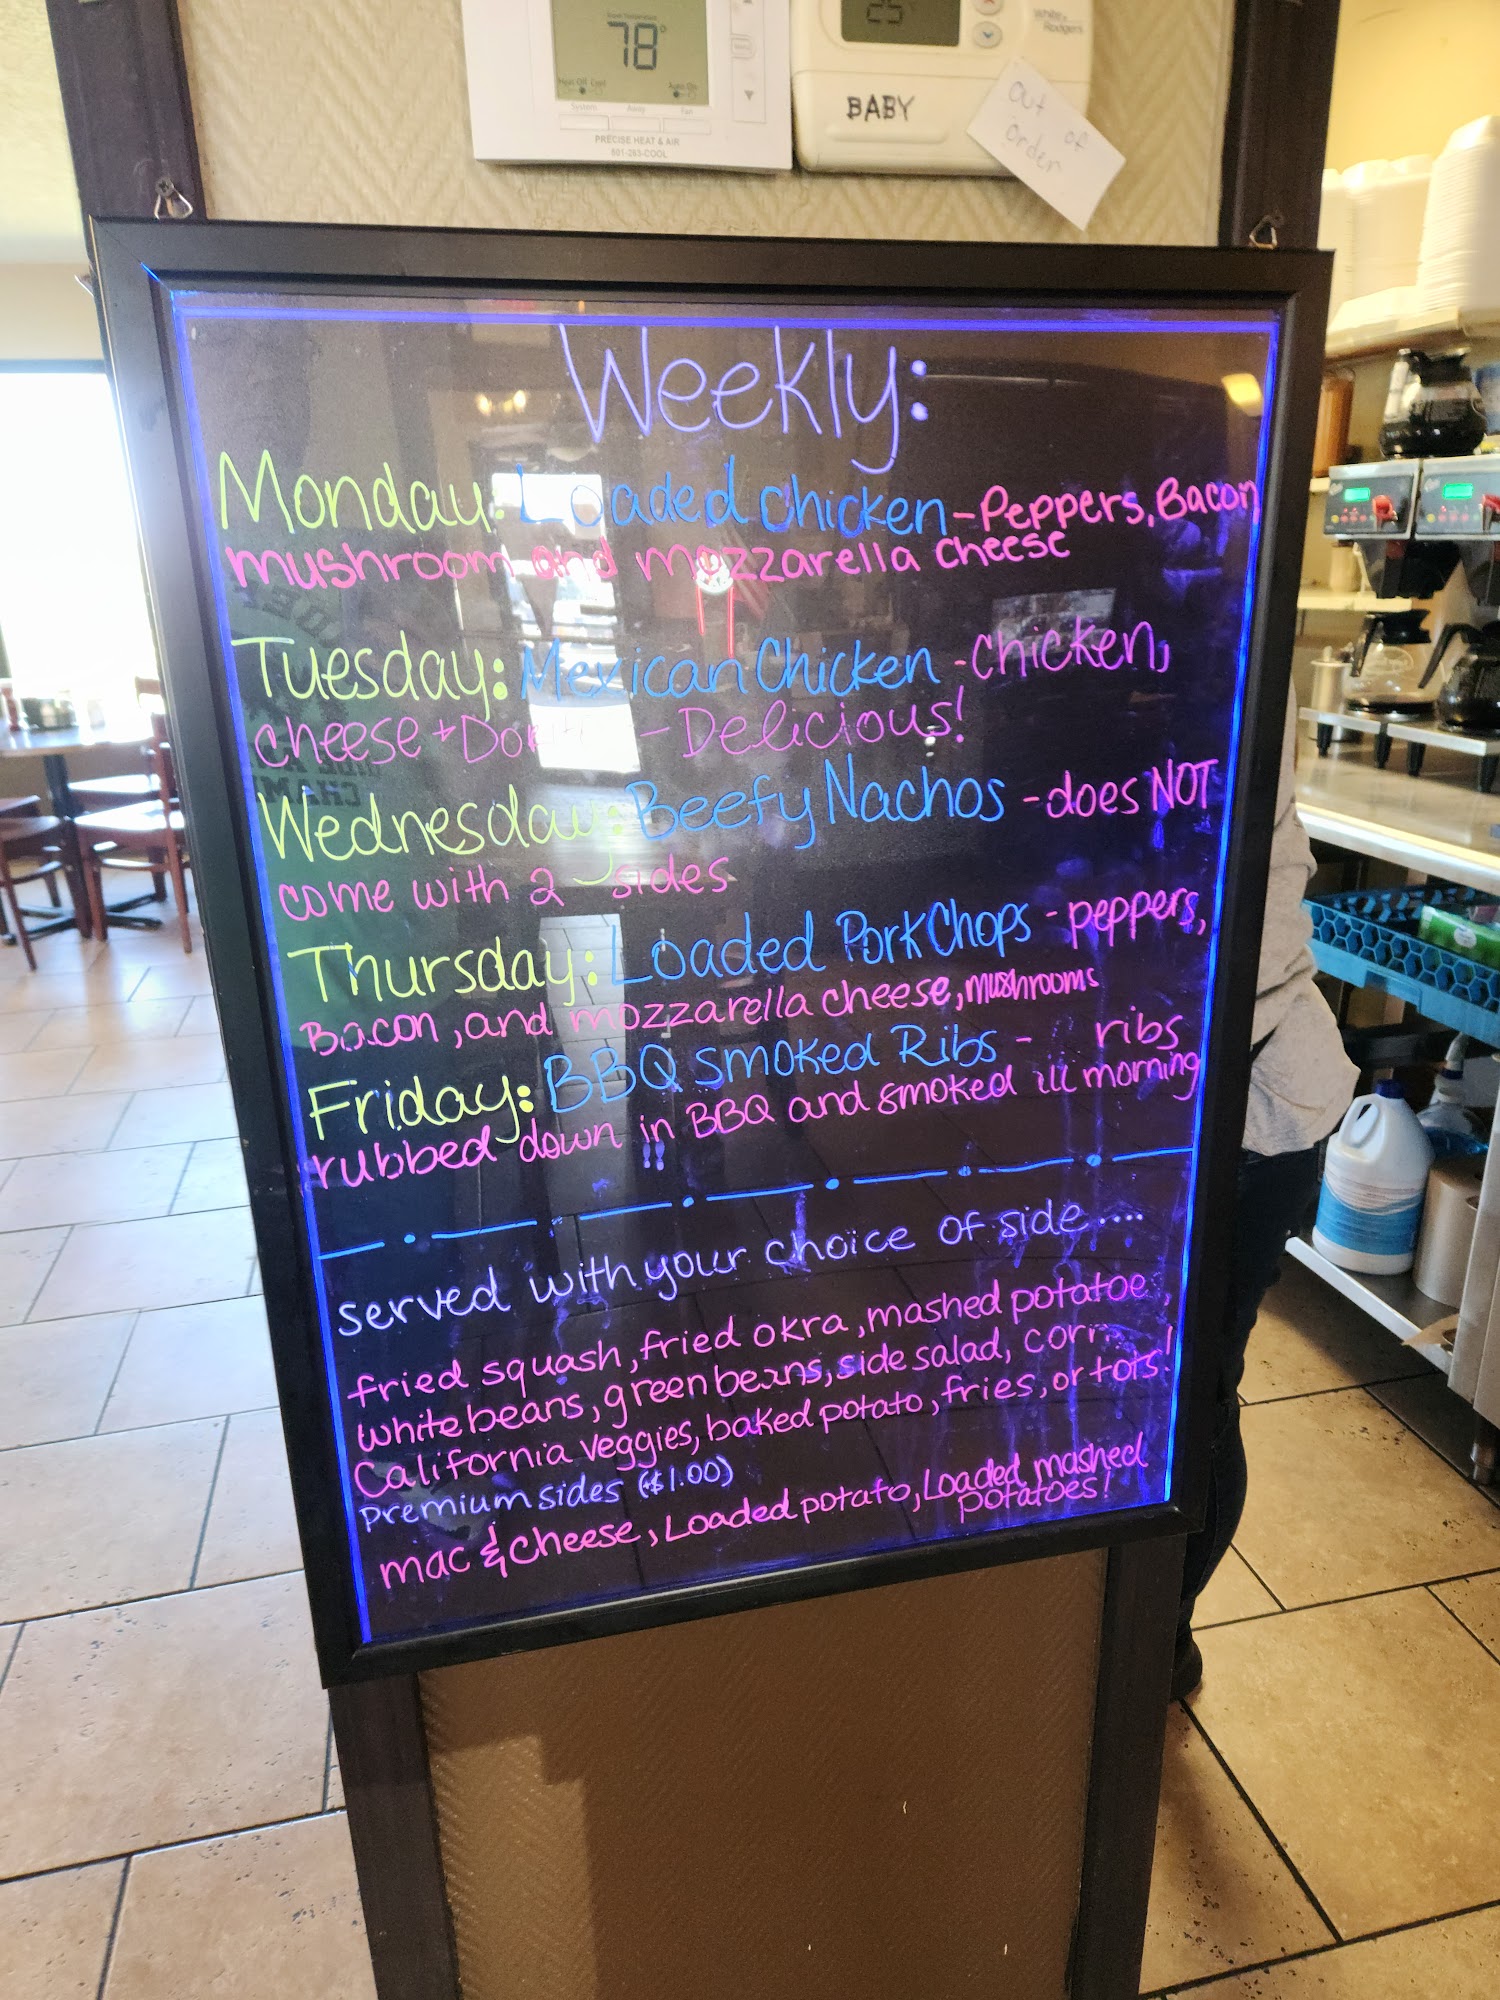 Room Temperature
78°
Heat Off Cool
Auto On
System Away Fan
PRECISE HEAT & AIR
601-283-COOL
25
White Rodgers
BABY
Out of
order
Weekly:
Monday: Loaded chicken - Peppers, Bacon
mushroom and mozzarella cheese
Tuesday: Mexican Chicken - Chicken,
cheese + - Delicious!
Wednesday: Beefy Nachos - does NOT
come with 2 sides
Thursday: Loaded Pork Chops - peppers,
Bacon, and mozzarella cheese, mushrooms
Friday: BBQ smoked Ribs - ribs
rubbed down in BBQ and smoked ill morning
!!
served with your choice of side....
fried squash, fried okra, mashed potatoe,
white beans, green beans, side salad, corn
California veggies, baked potato, fries, or tots!
Premium sides (+$1.00)
mac & cheese, Loaded potato, Loaded mashed
potatoes!